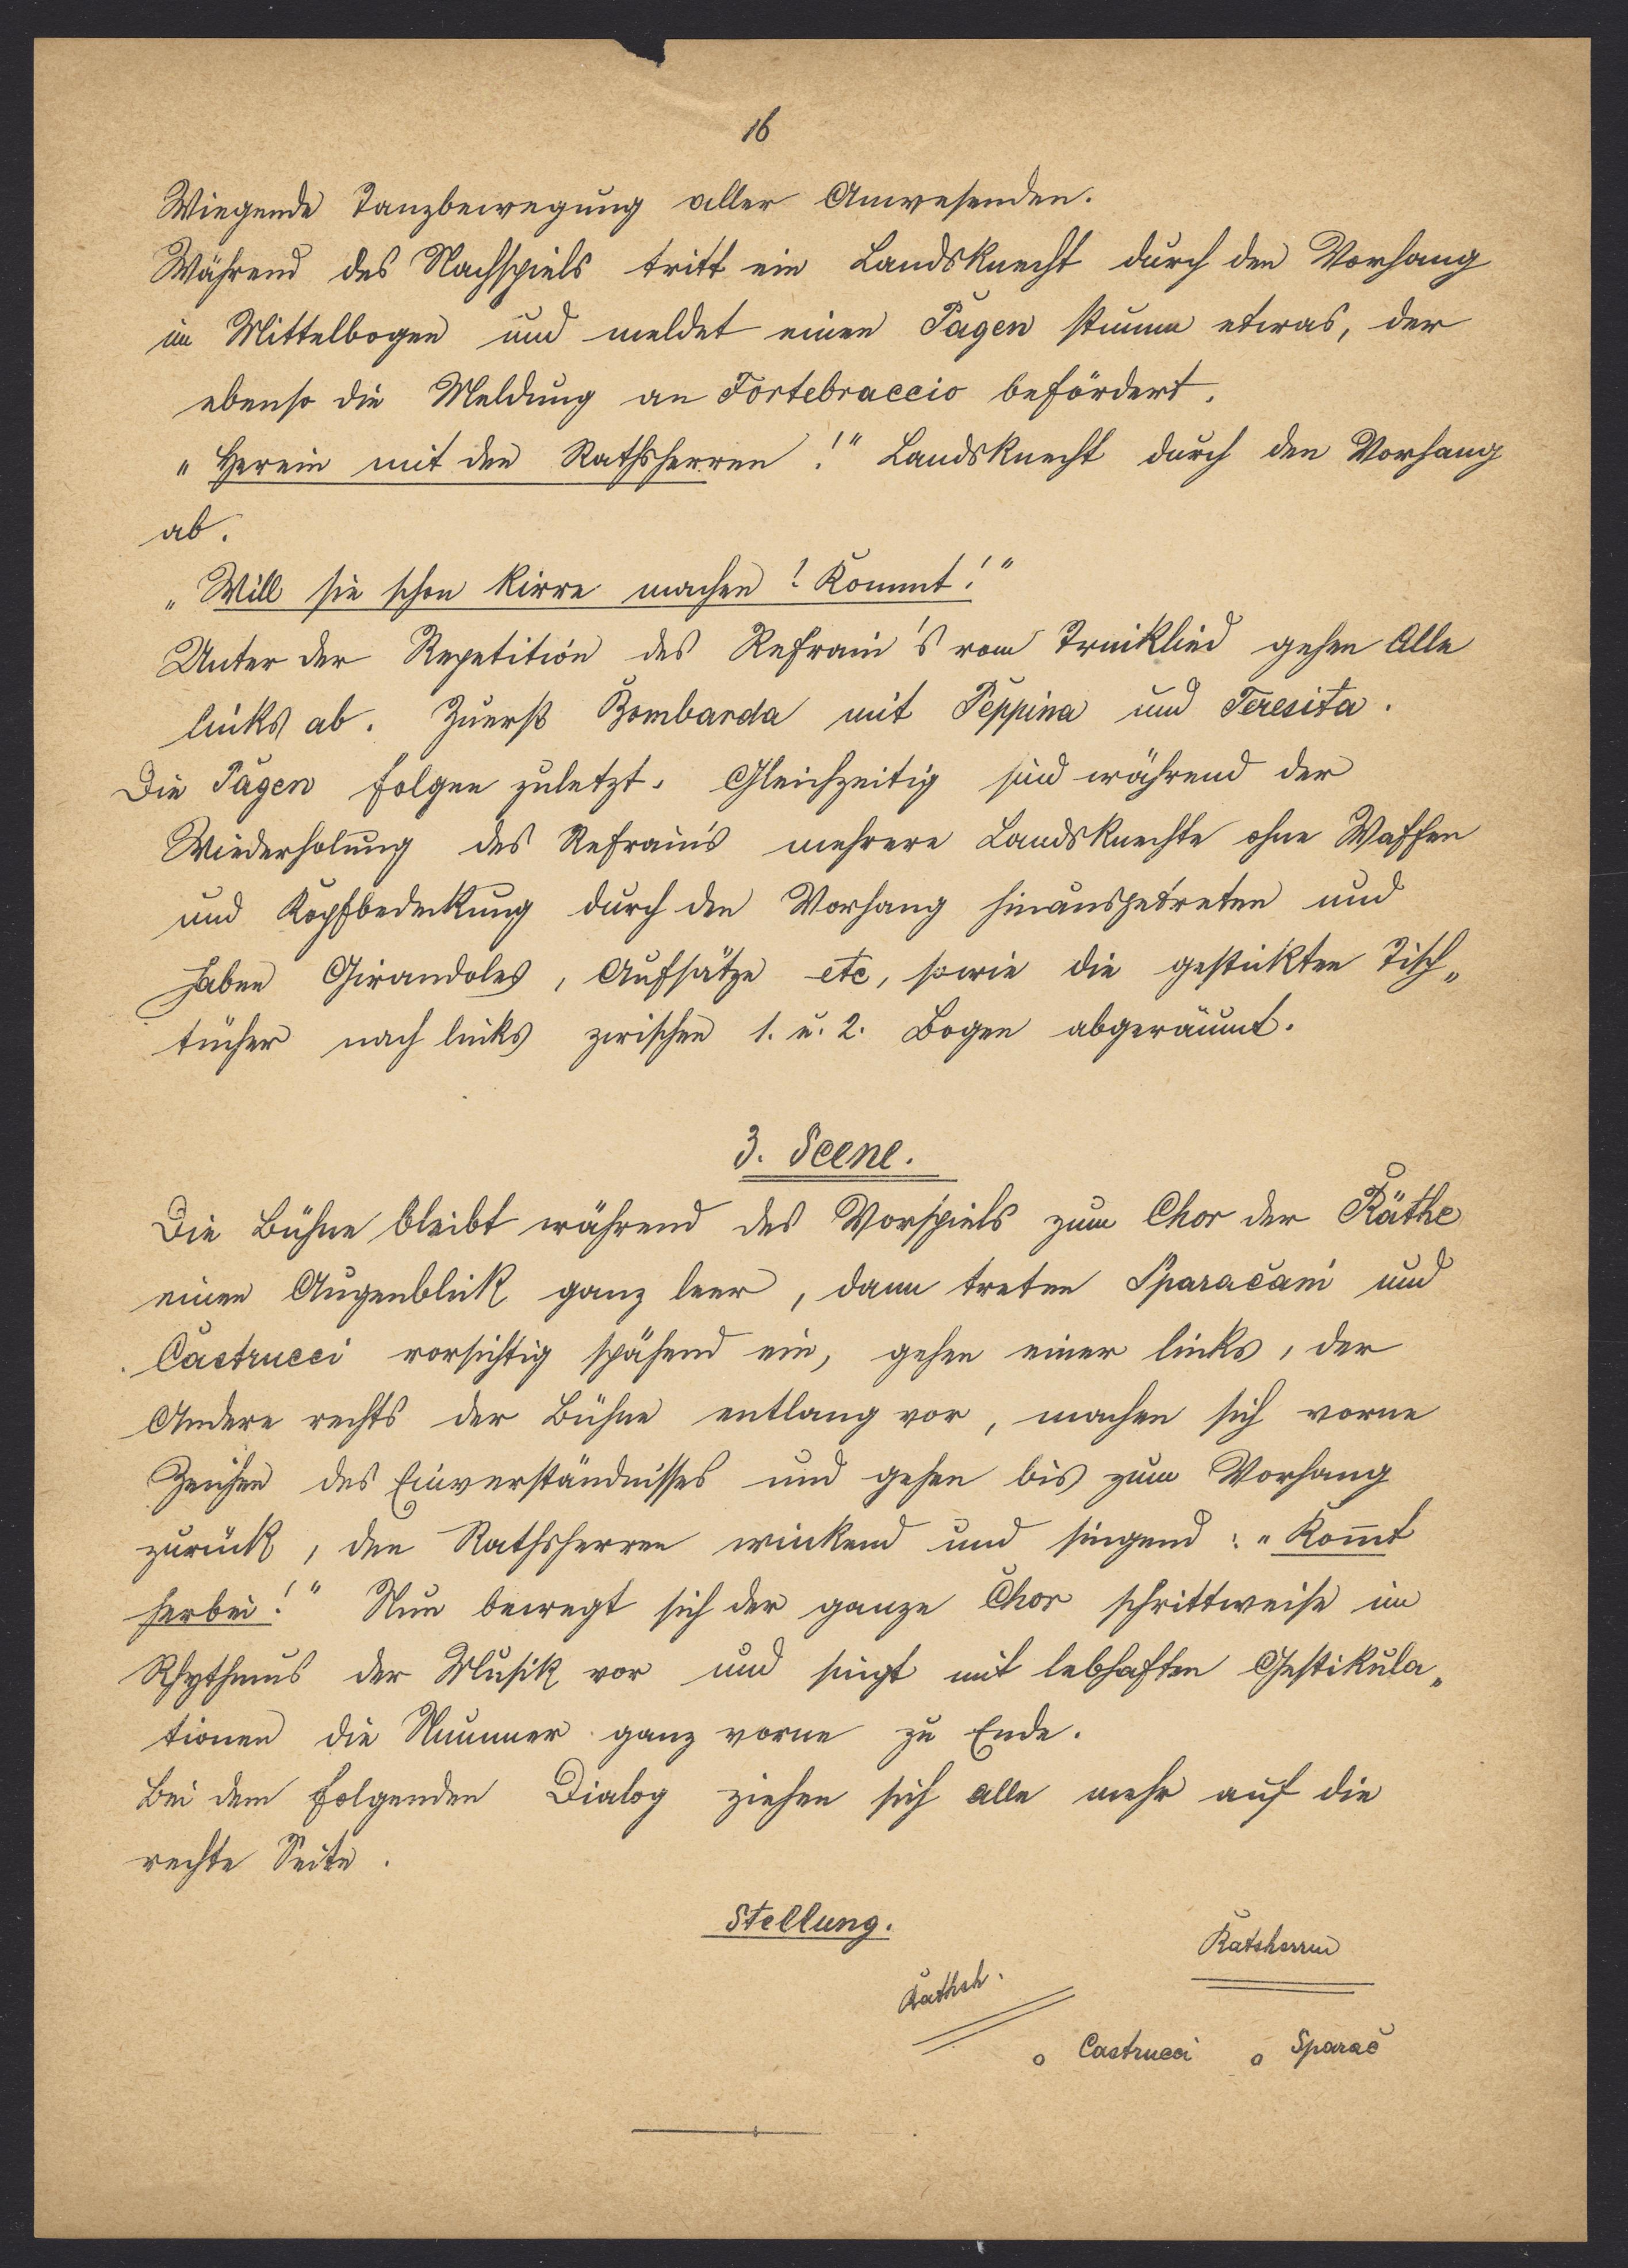 16
Wiegende Tanzbewegung aller Anwesenden.
Während des Nachspiels tritt ein Landsknecht durch den Vorhang
im Mittelbogen und meldet einen Pagen stumm etwas, der
ebenso die Meldung an Fortebraccio befördert.
"Herein mit den Rathsherren!" Landsknecht durch den Vorhang
ab.
„Will sie schon kirre machen! Kommt!"
Unter der Repetition des Refrain's vom Trinklied gehen Alle
links ab. Zuerst Bombarda mit Peppina und Teresita.
Die Pagen folgen zuletzt. Gleichzeitig sind während der
Wiederholung des Refrain's mehrere Landsknechte ohne Waffen
und Kopfbedeckung durch den Vorhang hinausgetreten und
haben Girandoles, Aufsätze etc, sowie die gestickten Tisch„
tücher nach links zwischen 1. u. 2. Bogen abgeräumt.
3. Scene.
Die Bühne bleibt während des Vorspiels zum Chor der Räthe
einen Augenblick ganz leer, dann treten Sparacani und
Castrucci vorsichtig spähend ein, gehen einer links, der
Andere rechts der Bühne entlang vor, machen sich vorne
Zeichen des Einverständnisses und gehen bis zum Vorhang
zurück, den Rathsherren winkend und singend: "Kom̄t
herbei!" Nun bewegt sich der ganze Chor schrittweise im
Rhythmus der Musik vor und singt mit lebhaften Gestikula„
tionen die Nummer ganz vorne zu Ende.
Bei dem folgenden Dialog ziehen sich alle mehr auf die
rechte Seite.
Stellung.
Ratsherren
Rathsh.
o Castrucci o Sparac